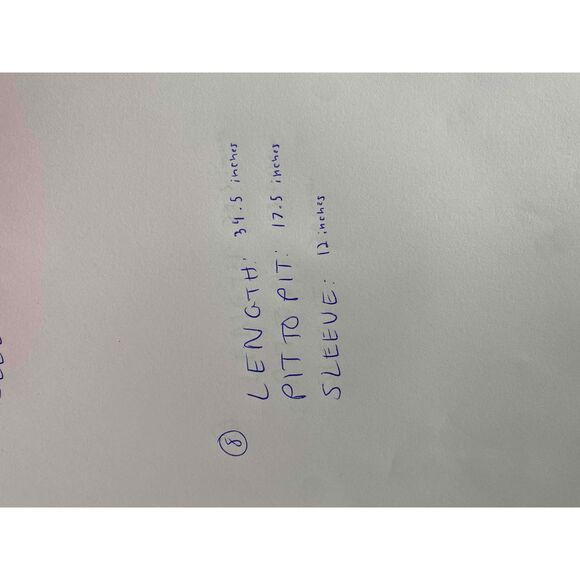 8
LENGTH: 34.5 inches
PIT TO PIT: 17.5 inches
SLEEVE: 12 inches